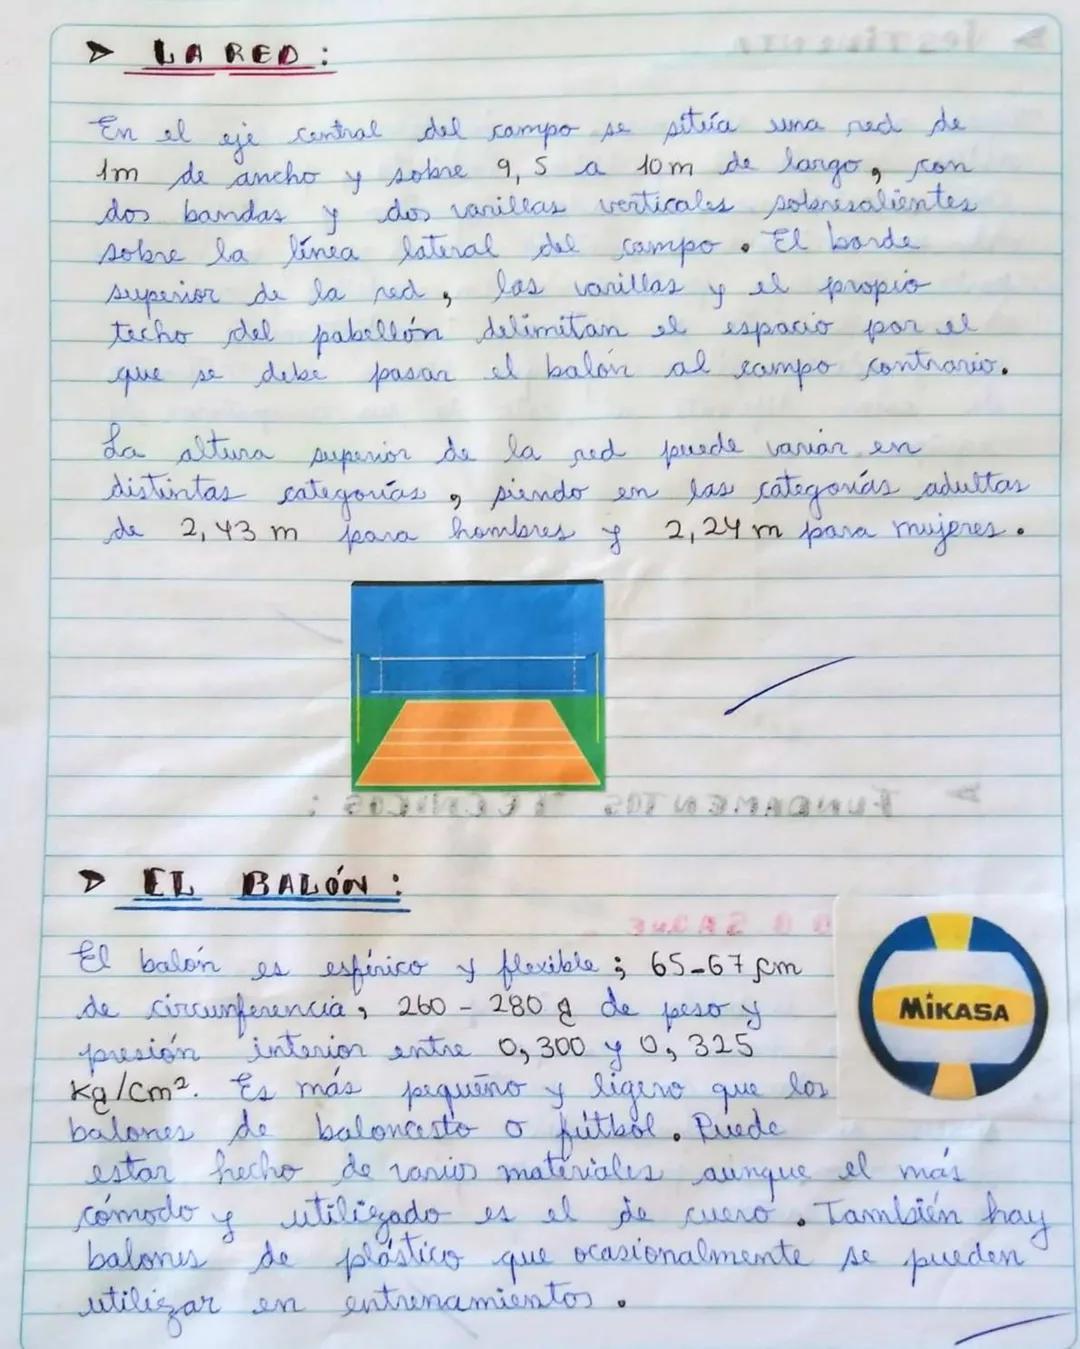 ➤ LA RED:
En el eje central del campo se sitúa una red de
1m de ancho y sobre 9,5 a 10m de largo, con
dos bandas y dos varillas verticales sobresalientes
sobre la línea lateral del campo. El borde
superior de la red, las varillas y el propio
techo del pabellón delimitan el espacio por el
que se debe pasar el balón al campo contrario.
La altura superior de la red puede variar en
distintas categorías, siendo en las categorías adultas
de 2,43 m para hombres y 2,24 m para mujeres.
FUNDAMENTOS TÉCNICOS:
➤ EL BALÓN:
SAQUE
El balón es esférico y flexible; 65-67 cm
MIKASA
de circunferencia, 260 - 280 g de peso y
presión interior entre 0,300 y 0,325
Kg/Cm². Es más pequeño y ligero que los
balones de baloncesto o fútbol. Puede
estar hecho de varios materiales aunque el más
cómodo y utilizado es el de cuero. También hay
balones de plástico que ocasionalmente se pueden
utilizar en entrenamientos.